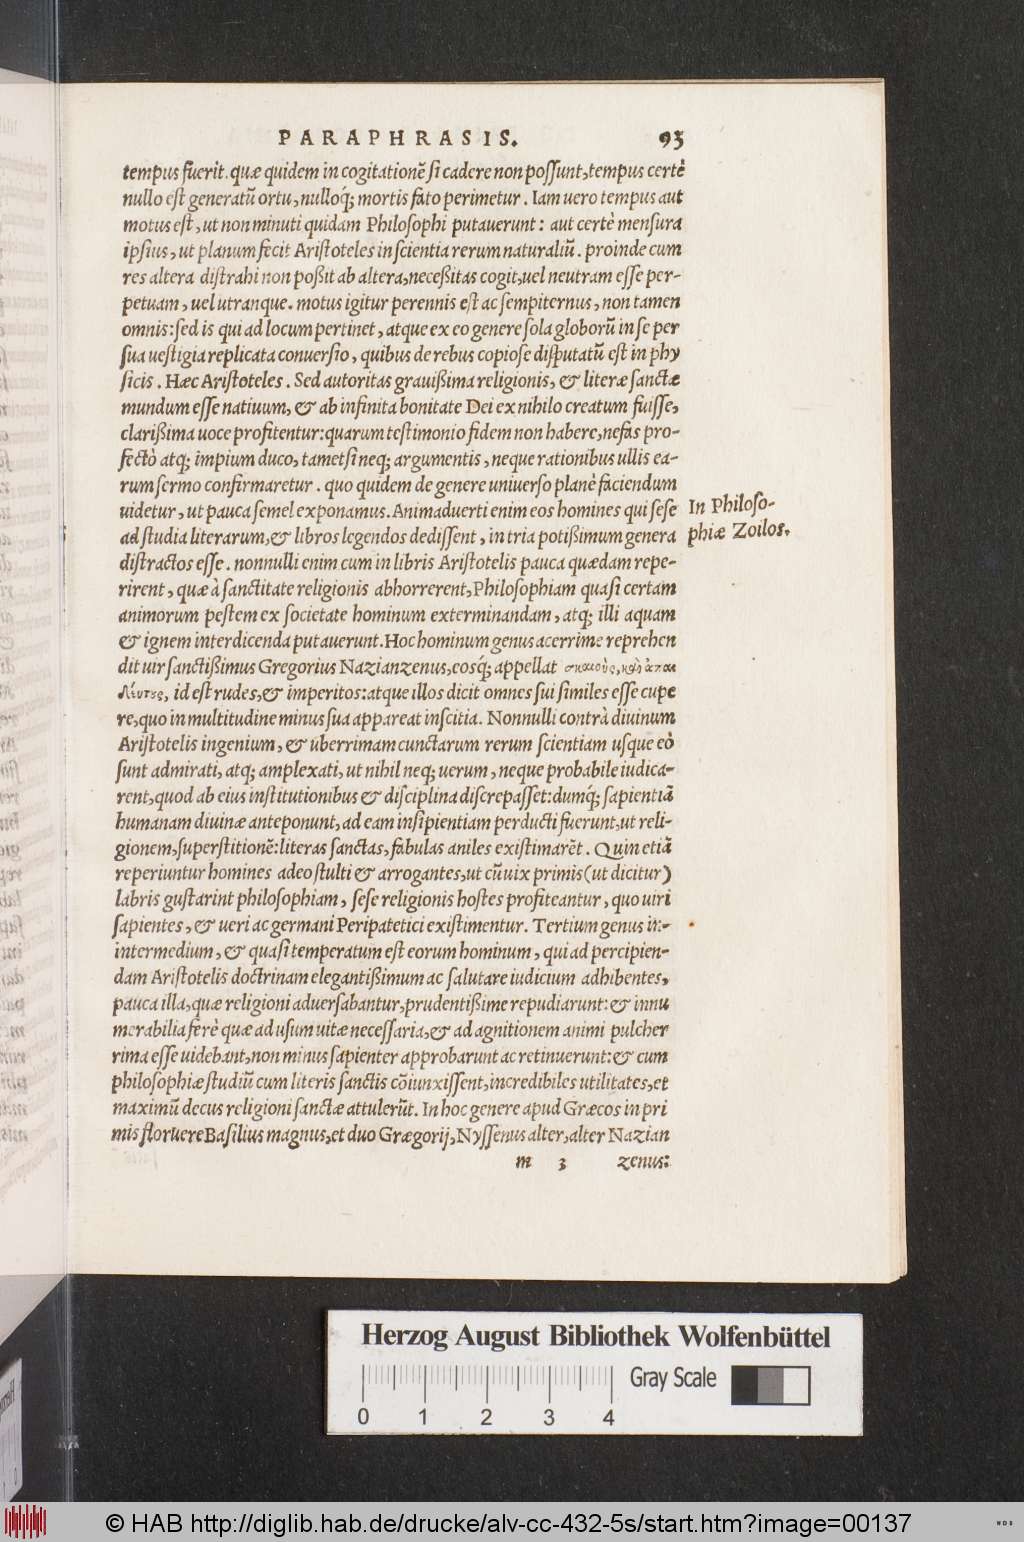 PARAPHRASIS. 93
tempus fuerit. quæ quidem in cogitationẽ si cadere non possunt, tempus certè
nullo est generatũ ortu, nulloq́; mortis fato perimetur. Iam uero tempus aut
motus est, ut non minuti quidam Philosophi putauerunt: aut certè mensura
ipsius, ut planum fecit Aristoteles in scientia rerum naturaliũ. proinde cum
res altera distrahi non poßit ab altera, neceßitas cogit, uel neutram esse per-
petuam, uel utranque. motus igitur perennis est ac sempiternus, non tamen
omnis: sed is qui ad locum pertinet, atque ex eo genere sola globorũ in se per
sua uestigia replicata conuersio, quibus de rebus copiose disputatũ est in phy
sicis. Hæc Aristoteles. Sed autoritas grauißima religionis, & literæ sanctæ
mundum esse natiuum, & ab infinita bonitate Dei ex nihilo creatum fuisse,
clarißima uoce profitentur: quarum testimonio fidem non habere, nefas pro-
fectò atq; impium duco, tametsi neq; argumentis, neque rationibus ullis ea-
rum sermo confirmaretur. quo quidem de genere uniuerso planè faciendum
uidetur, ut pauca semel exponamus. Animaduerti enim eos homines qui sese
In Philoso-
ad studia literarum, & libros legendos dedissent, in tria potißimum genera
phiæ Zoilos.
distractos esse. nonnulli enim cum in libris Aristotelis pauca quædam repe-
rirent, quæ à sanctitate religionis abhorrerent, Philosophiam quasi certam
animorum pestem ex societate hominum exterminandam, atq; illi aquam
& ignem interdicenda putauerunt. Hoc hominum genus acerrime reprehen
dit uir sanctißimus Gregorius Nazianzenus, eosq́; appellat σκαιοὺς, καὶ ἀπαι
δεύτους, id est rudes, & imperitos: atque illos dicit omnes sui similes esse cupe
re, quo in multitudine minus sua appareat inscitia. Nonnulli contrà diuinum
Aristotelis ingenium, & uberrimam cunctarum rerum scientiam usque eò
sunt admirati, atq; amplexati, ut nihil neq; uerum, neque probabile iudica-
rent, quod ab eius institutionibus & disciplina discrepasset: dumq́; sapientiã
humanam diuinæ anteponunt, ad eam insipientiam perducti fuerunt, ut reli-
gionem, superstitionẽ: literas sanctas, fabulas aniles existimarẽt. Quin etiã
reperiuntur homines adeo stulti & arrogantes, ut cũ uix primis (ut dicitur)
labris gustarint philosophiam, sese religionis hostes profiteantur, quo uiri
sapientes, & ueri ac germani Peripatetici existimentur. Tertium genus in-
intermedium, & quasi temperatum est eorum hominum, qui ad percipien-
dam Aristotelis doctrinam elegantißimum ac salutare iudicium adhibentes,
pauca illa, quæ religioni aduersabantur, prudentißime repudiarunt: & innu
merabilia ferè quæ ad usum uitæ necessaria, & ad agnitionem animi pulcher
rima esse uidebant, non minus sapienter approbarunt ac retinuerunt: & cum
philosophiæ studiũ cum literis sanctis cõiunxissent, incredibiles utilitates, et
maximũ decus religioni sanctæ attulerũt. In hoc genere apud Græcos in pri
mis floruere Basilius magnus, et duo Græegorij, Nyssenus alter, alter Nazian
m 3 zenus:
Herzog August Bibliothek Wolfenbüttel
Gray Scale
0 1 2 3 4
© HAB http://diglib.hab.de/drucke/alv-cc-432-5s/start.htm?image=00137